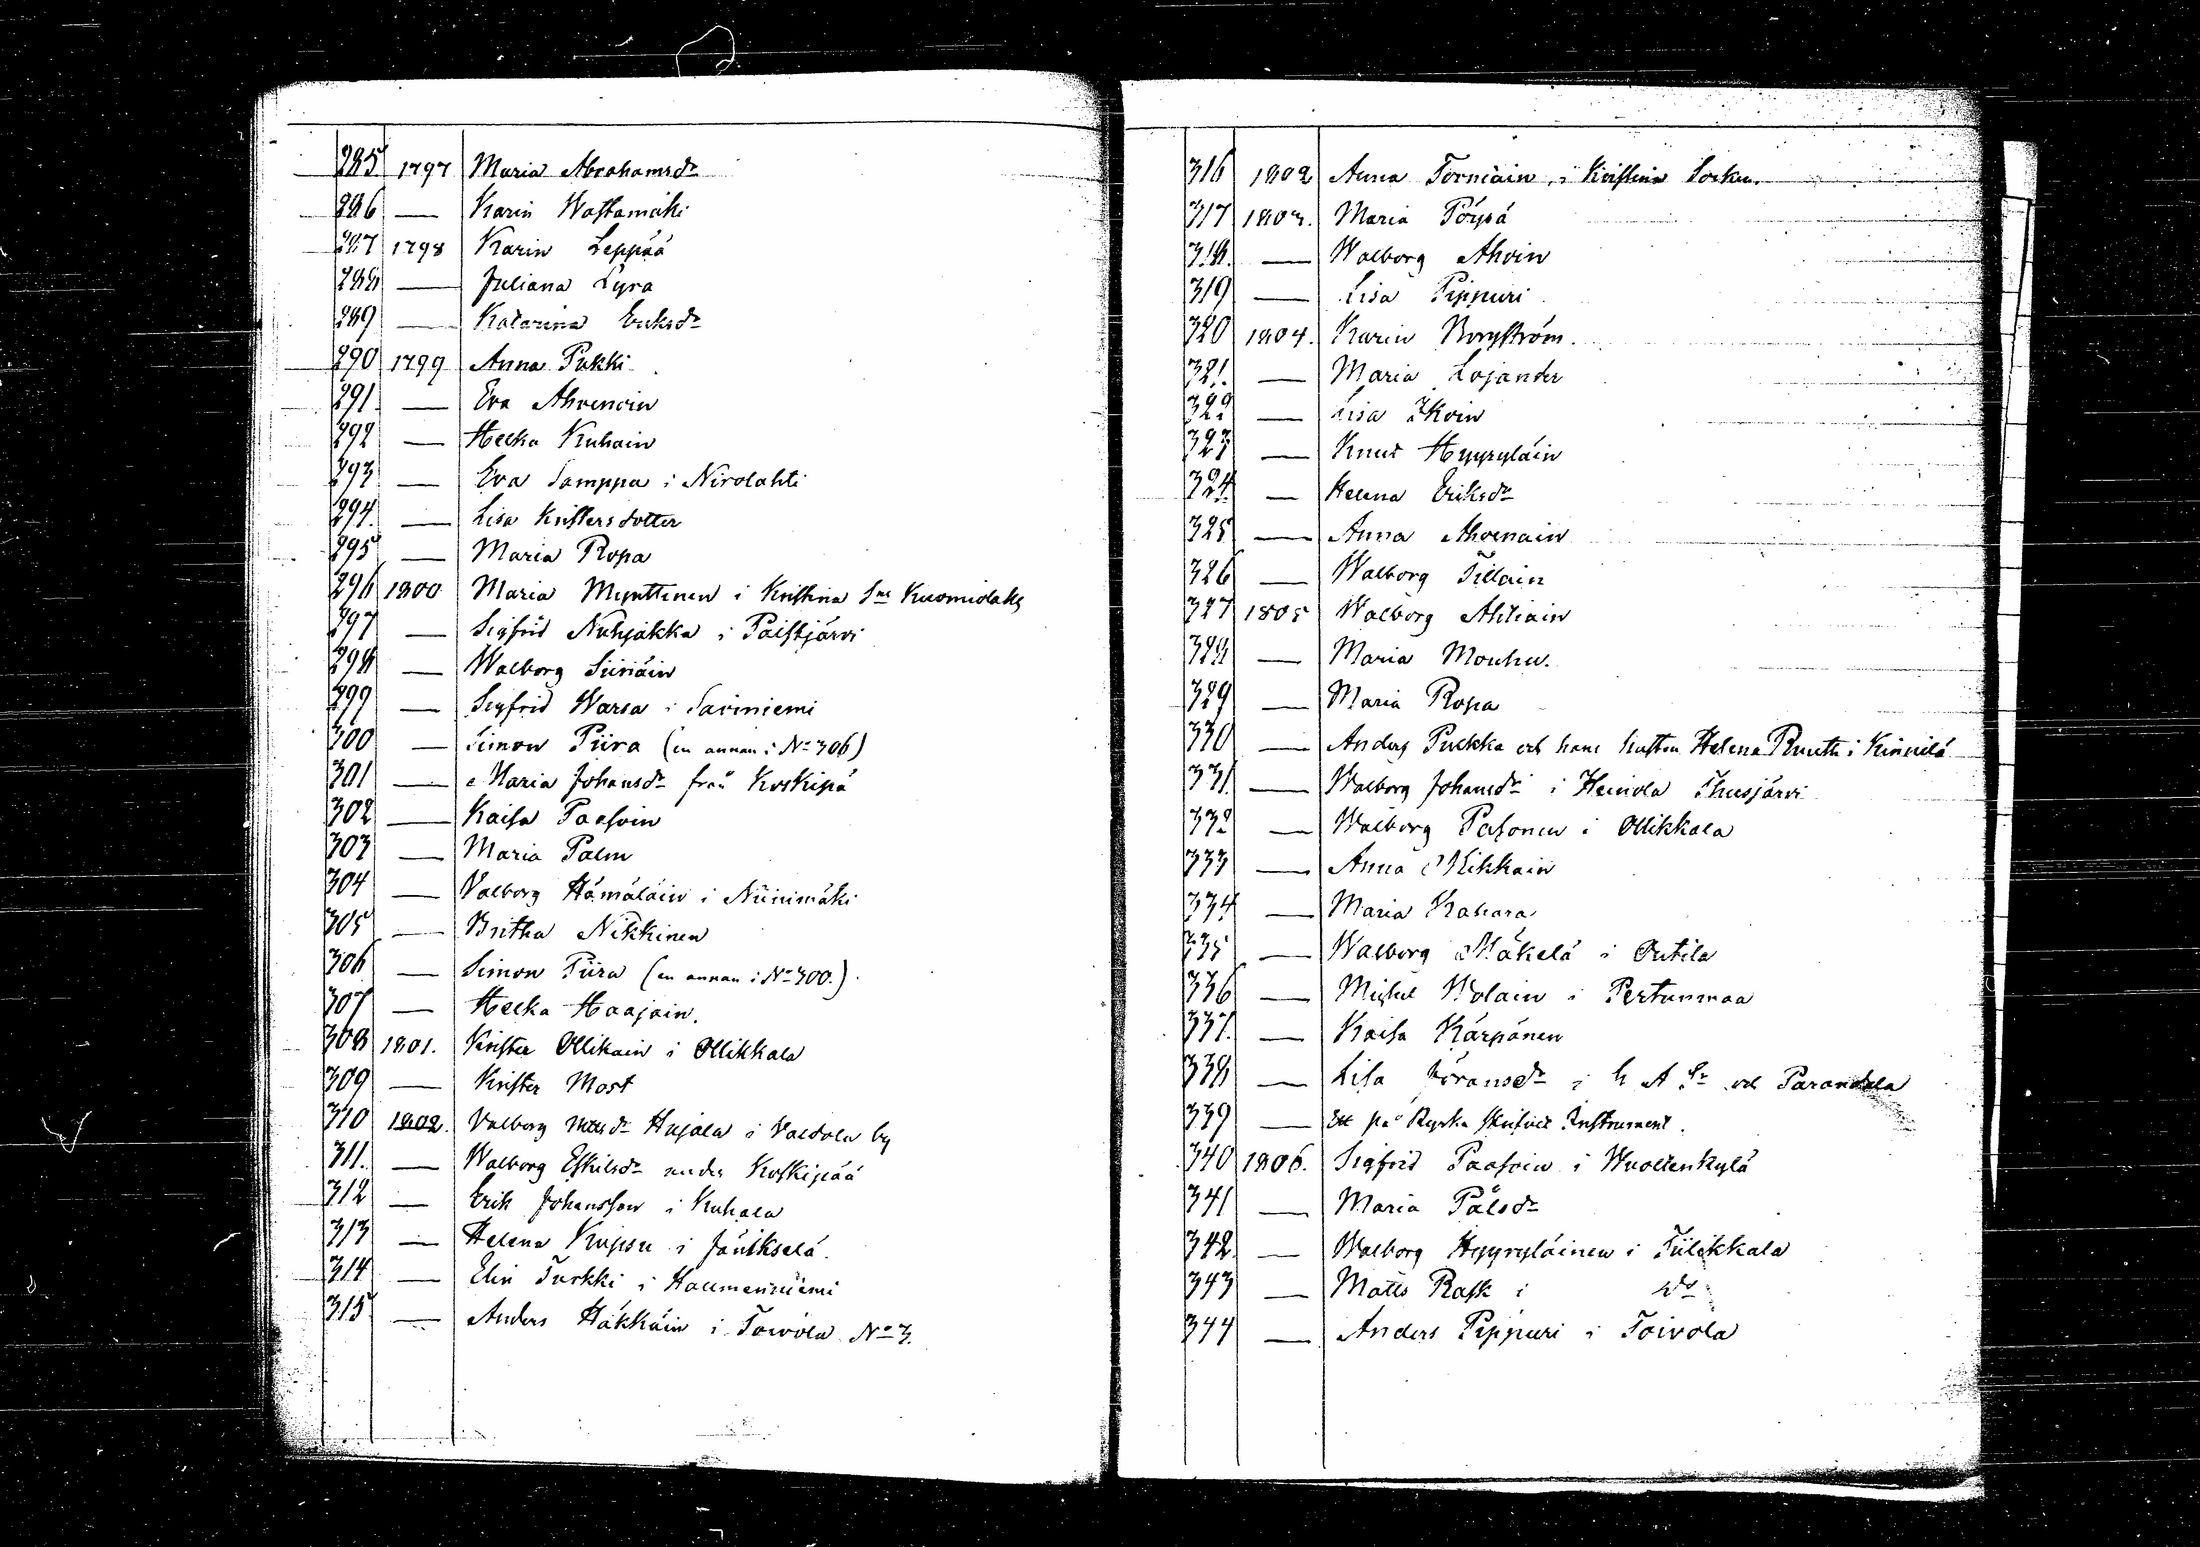 285 1797 Maria Abrahamsdr
286 — Karin Wattamäki
287 1798 Karin Leppää
288 — Juliana Lyra
289 — Katarina Eriksdr
290 1799 Anna Pukki
291. — Eva Ahvenoin
292 — Helka Kuhain
293 — Eva Samppa i Nirolahti
294. — Lisa Kristersdotter
295 — Maria Ropa
296 1800 Maria Mynttinen i Kristina Sn
297 — Sigfrid Nuhjakka i Paistjärvi
298 — Walborg Siiriäin
299 — Sigfrid Warsa i Saviniemi
300 — Simon Piira (en annan i No 306)
301 — Maria Johansdr från Koskipä
302 — Kaisa Paasoin
303 — Maria Palm
304 — Valborg Hämäläin i Niinimäki
305 — Britha Nikkinen
306 — Simon Piira (en annan i No 300.)
307 — Helka Haajain.
308 1801. Krister Ollikain i Ollikkala
309 — Krister Most
310 1802. Valborg Hujala i Valdola by
311. — Walborg Eskilsdr under Koskipää
312 — Erik Johansson i Kuhala
313 — Helena Kupsu i
314 — Elin Turkki i Hallmenniemi
315 — Anders Häkkäin i Toivola No 3.
316 1802 Anna Torniäin, i Kristina Socken.
317 1803. Maria Pöyrä
318. — Walborg Ahoin
319 — Lisa Pippuri
320 1804. Karin Borgström.
321. — Maria Lojander
322 — Lisa Ikoin
323 — Knut Hyyryläin
324. — Helena Eriksdr
325 — Anna Ahvenain
326 — Walborg Tillain
327 1805 Walborg Ahtiain
328 — Maria Mouhu.
329 — Maria Ropa
330 — Anders Pukka och hans hustru Helena Ruuth i Kinnilä
331. — Walborg Johansdr i Heinola Ihusjärvi
332 — Walborg Pasonen i Ollikkala
333 — Anna Mikkain
334 — Maria Kakara
335 — Walborg Mäkelä i Outila
336 — Michel Wolain i Pertunmaa
337. — Kaisa Kärpänen
338 — Lisa Göransdr i h A Sn och Parandala
339 — Ett på Ryska skrifvet Instrument.
340 1806. Sigfrid Paasoin i Wuoltenkylä
341 — Maria Pålsdr
342. — Walborg Hyyryläinen i Tiilikkala
343 — Matts Rask i do
344 — Anders Pippuri i Toivola